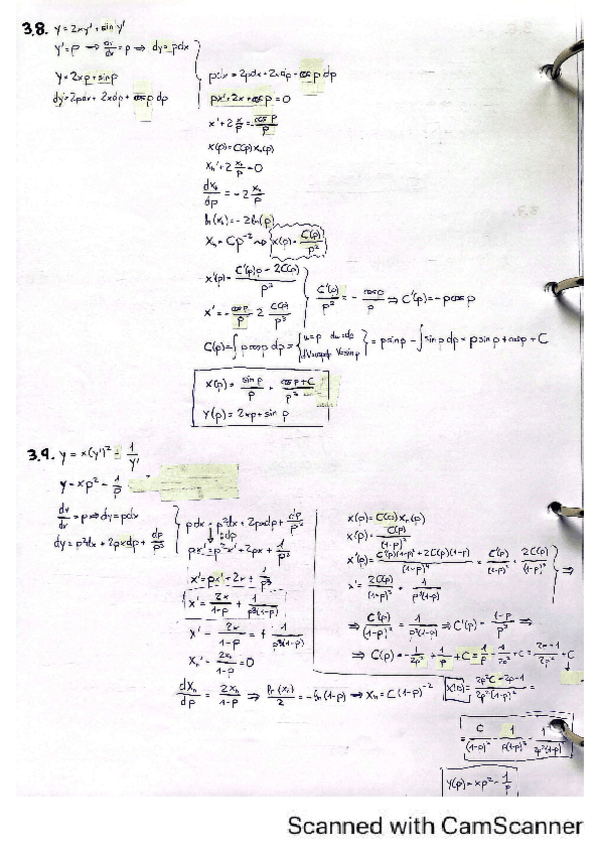 3.8. y = 2xy' + sin y'
y' = p → dy/dx = p → dy = pdx
y = 2xp + sin p
dy = 2pdx + 2xdp + cos p dp
pdx = 2pdx + 2xdp + cos p dp
px' + 2x + cos p = 0
x' + 2 x/p = - cos p/p
x(p) = C(p) xₕ(p)
xₕ' + 2 xₕ/p = 0
dxₕ/dp = -2 xₕ/p
ln(xₕ) = -2 ln(p)
xₕ = Cp⁻² → x(p) = C(p)/p²
x'(p) = C'(p)p - 2C(p)/p³
x' = - cos p/p - 2 C(p)/p³
C'(p)/p² = - cos p/p ⇒ C'(p) = - p cos p
C(p) = ∫ p cos p dp = {u = p du = dp
dV = cos p dp V = sin p} = p sin p - ∫ sin p dp = p sin p + cos p + C
x(p) = sin p/p + cos p + C/p²
y(p) = 2xp + sin p
3.9. y = x(y')² - 1/y'
y = xp² - 1/p
dy/dx = p ⇒ dy = pdx
dy = p²dx + 2pxdp + dp/p²
pdx = p²dx + 2pxdp + dp/p²
:dp
px' = p²x' + 2px + 1/p²
x' = px' + 2x + 1/p³
x' = 2x/1-p + 1/p³(1-p)
x' - 2x/1-p = + 1/p³(1-p)
xₕ' - 2xₕ/1-p = 0
dxₕ/dp = 2xₕ/1-p ⇒ ln(xₕ)/2 = - ln(1-p) → xₕ = C(1-p)⁻²
x(p) = C(p) xₕ(p)
x(p) = C(p)/(1-p)²
x'(p) = C'(p)(1-p)² + 2C(p)(1-p)/(1-p)⁴ = C'(p)/(1-p)² + 2C(p)/(1-p)³
x' = 2C(p)/(1-p)³ + 1/p³(1-p) ⇒
⇒ C'(p)/(1-p)² = 1/p³(1-p) ⇒ C'(p) = 1-p/p³ ⇒
⇒ C(p) = - 1/2p² + 1/p + C = 1/p - 1/2p² + C = 2p-1/2p² + C
x(p) = 2p²C + 2p-1/2p²(1-p)² =
= C/(1-p)² + 1/p(1-p)² - 1/2p²(1-p)²
y(p) = xp² - 1/p
Scanned with CamScanner